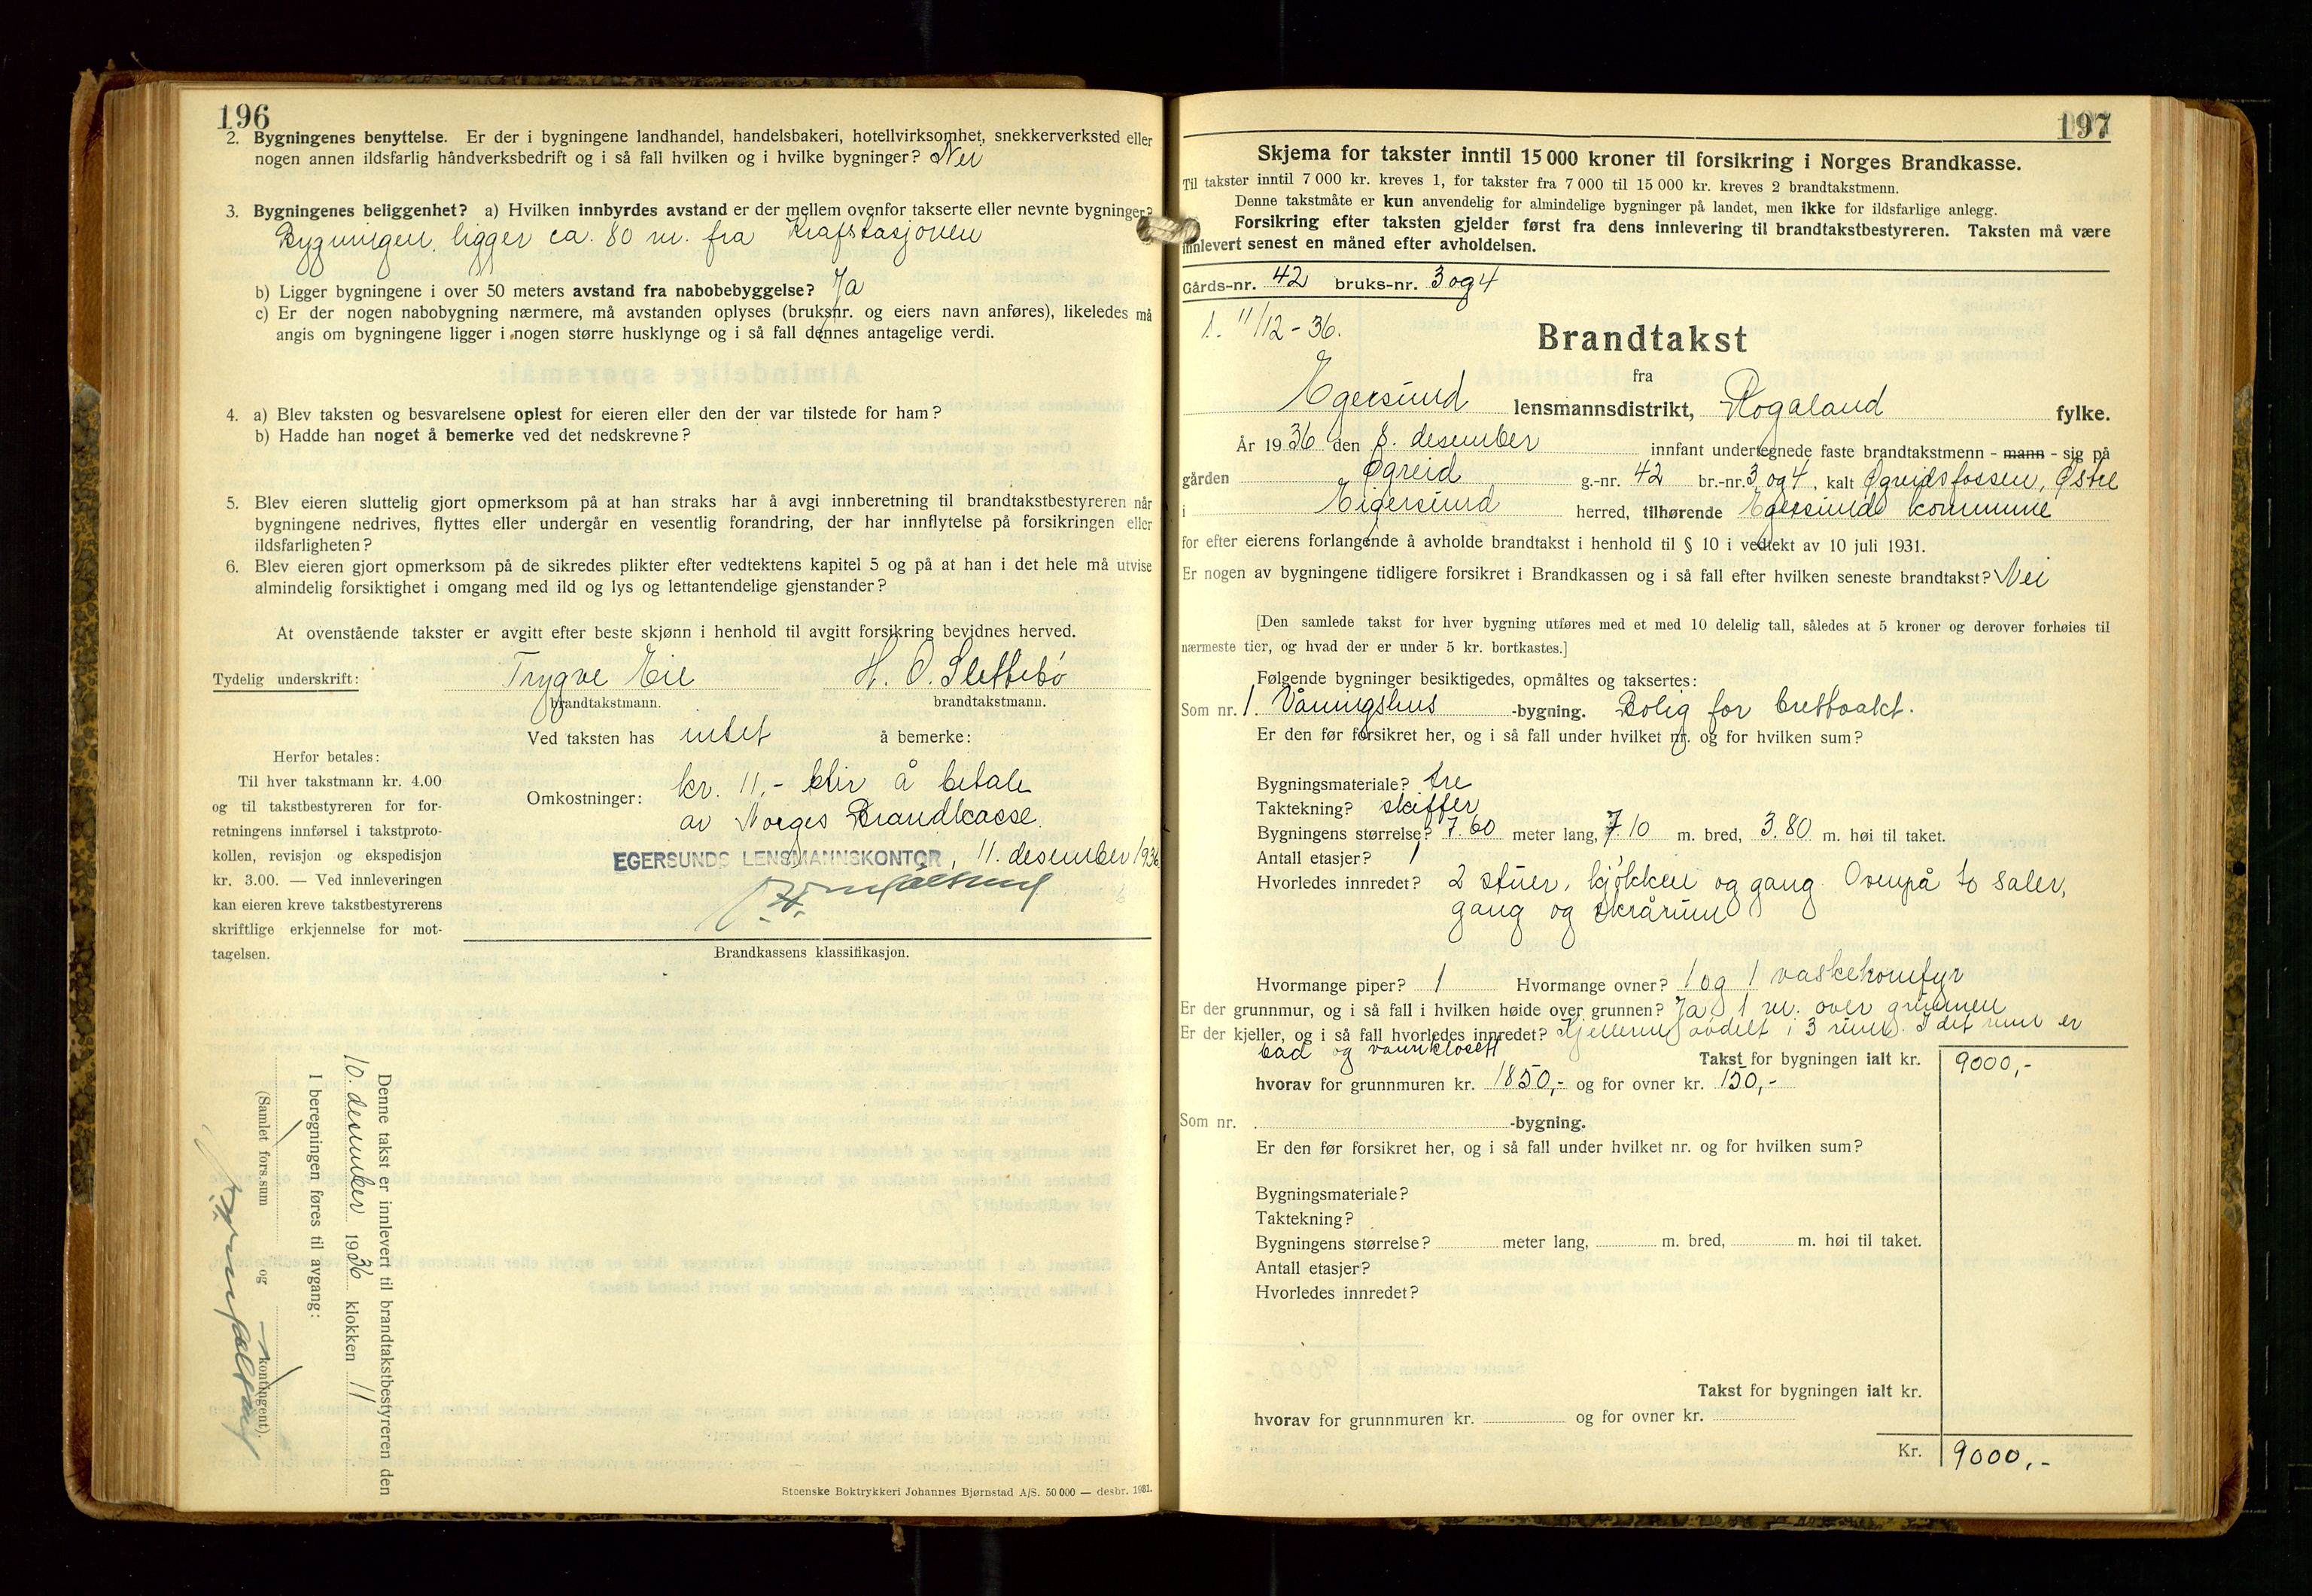 196
2. Bygningenes benyttelse. Er der i bygningene landhandel, handelsbakeri, hotellvirksomhet, snekkerverksted eller
nogen annen ildsfarlig håndverksbedrift og i så fall hvilken og i hvilke bygninger? Nei
3. Bygningenes beliggenhet? a) Hvilken innbyrdes avstand er der mellem ovenfor takserte eller nevnte bygninger?
Bygningen ligger ca. 80 m. fra Krafstasjonen
b) Ligger bygningene i over 50 meters avstand fra nabobebyggelse? Ja
c) Er der nogen nabobygning nærmere, må avstanden oplyses (bruksnr. og eiers navn anføres), likeledes må
angis om bygningene ligger i nogen større husklynge og i så fall dennes antagelige verdi.
4. a) Blev taksten og besvarelsene oplest for eieren eller den der var tilstede for ham?
b) Hadde han noget å bemerke ved det nedskrevne?
5. Blev eieren sluttelig gjort opmerksom på at han straks har å avgi innberetning til brandtakstbestyreren når
bygningene nedrives, flyttes eller undergår en vesentlig forandring, der har innflytelse på forsikringen eller
ildsfarligheten?
6. Blev eieren gjort opmerksom på de sikredes plikter efter vedtektens kapitel 5 og på at han i det hele må utvise
almindelig forsiktighet i omgang med ild og lys og lettantendelige gjenstander?
At ovenstående takster er avgitt efter beste skjønn i henhold til avgitt forsikring bevidnes herved.
Tydelig underskrift: Trygve Eie H. O. Slettebö
brandtakstmann. brandtakstmann.
Ved taksten has intet å bemerke:
Herfor betales:
Til hver takstmann kr. 4.00
og til takstbestyreren for for-
retningens innførsel i takstproto-
kollen, revisjon og ekspedisjon
kr. 3.00. — Ved innleveringen
kan eieren kreve takstbestyrerens
skriftlige erkjennelse for mot-
tagelsen.
Omkostninger: kr. 11,- blir å betale
av Norges Brandkasse.
EGERSUNDS LENSMANNSKONTOR, 11. desember 1936
Brandkassens klassifikasjon.
Denne takst er innlevert til brandtakstbestyreren den
10. desember 1936 klokken 11
I beregningen føres til avgang:
(Samlet fors.sum og kontingent).
Steenske Boktrykkeri Johannes Bjørnstad A/S. 50 000 — desbr. 1931.
197
Skjema for takster inntil 15 000 kroner til forsikring i Norges Brandkasse.
Til takster inntil 7 000 kr. kreves 1, for takster fra 7 000 til 15 000 kr. kreves 2 brandtakstmenn.
Denne takstmåte er kun anvendelig for almindelige bygninger på landet, men ikke for ildsfarlige anlegg.
Forsikring efter taksten gjelder først fra dens innlevering til brandtakstbestyreren. Taksten må være
innlevert senest en måned efter avholdelsen.
Gårds-nr. 42 bruks-nr. 3 og 4
1. 11/12-36.
Brandtakst
fra
Egersund lensmannsdistrikt, Rogaland fylke.
År 1936 den 8. desember innfant undertegnede faste brandtakstmenn - mann - sig på
gården Øgreid g.-nr. 42 br.-nr. 3 og 4, kalt Øgreidsfossen, Østre
i Eigersund herred, tilhørende Egersunds kommune
for efter eierens forlangende å avholde brandtakst i henhold til § 10 i vedtekt av 10 juli 1931.
Er nogen av bygningene tidligere forsikret i Brandkassen og i så fall efter hvilken seneste brandtakst? Nei
[Den samlede takst for hver bygning utføres med et med 10 delelig tall, således at 5 kroner og derover forhøies til
nærmeste tier, og hvad der er under 5 kr. bortkastes.]
Følgende bygninger besiktigedes, opmåltes og taksertes:
Som nr. 1. Våningshus -bygning. Bolig for brettvakt.
Er den før forsikret her, og i så fall under hvilket nr. og for hvilken sum?
Bygningsmateriale? tre
Taktekning? skiffer
Bygningens størrelse? 7.60 meter lang, 7.10 m. bred, 3.80 m. høi til taket.
Antall etasjer? 1
Hvorledes innredet? 2 stuer, kjøkken og gang. Ovenpå to saler,
gang og skrårum
Hvormange piper? 1 Hvormange ovner? 1 og 1 vaskekomfyr
Er der grunnmur, og i så fall i hvilken høide over grunnen? Ja, 1 m. over grunnen
Er der kjeller, og i så fall hvorledes innredet? Kjelleren avdelt i 3 rum. I det rum er
bad og vannklosett
Takst for bygningen ialt kr. 9000,-
hvorav for grunnmuren kr. 1850,- og for ovner kr. 150,-
Som nr. -bygning.
Er den før forsikret her, og i så fall under hvilket nr. og for hvilken sum?
Bygningsmateriale?
Taktekning?
Bygningens størrelse? meter lang, m. bred, m. høi til taket.
Antall etasjer?
Hvorledes innredet?
Takst for bygningen ialt kr.
hvorav for grunnmuren kr. og for ovner kr.
Kr. 9000,-